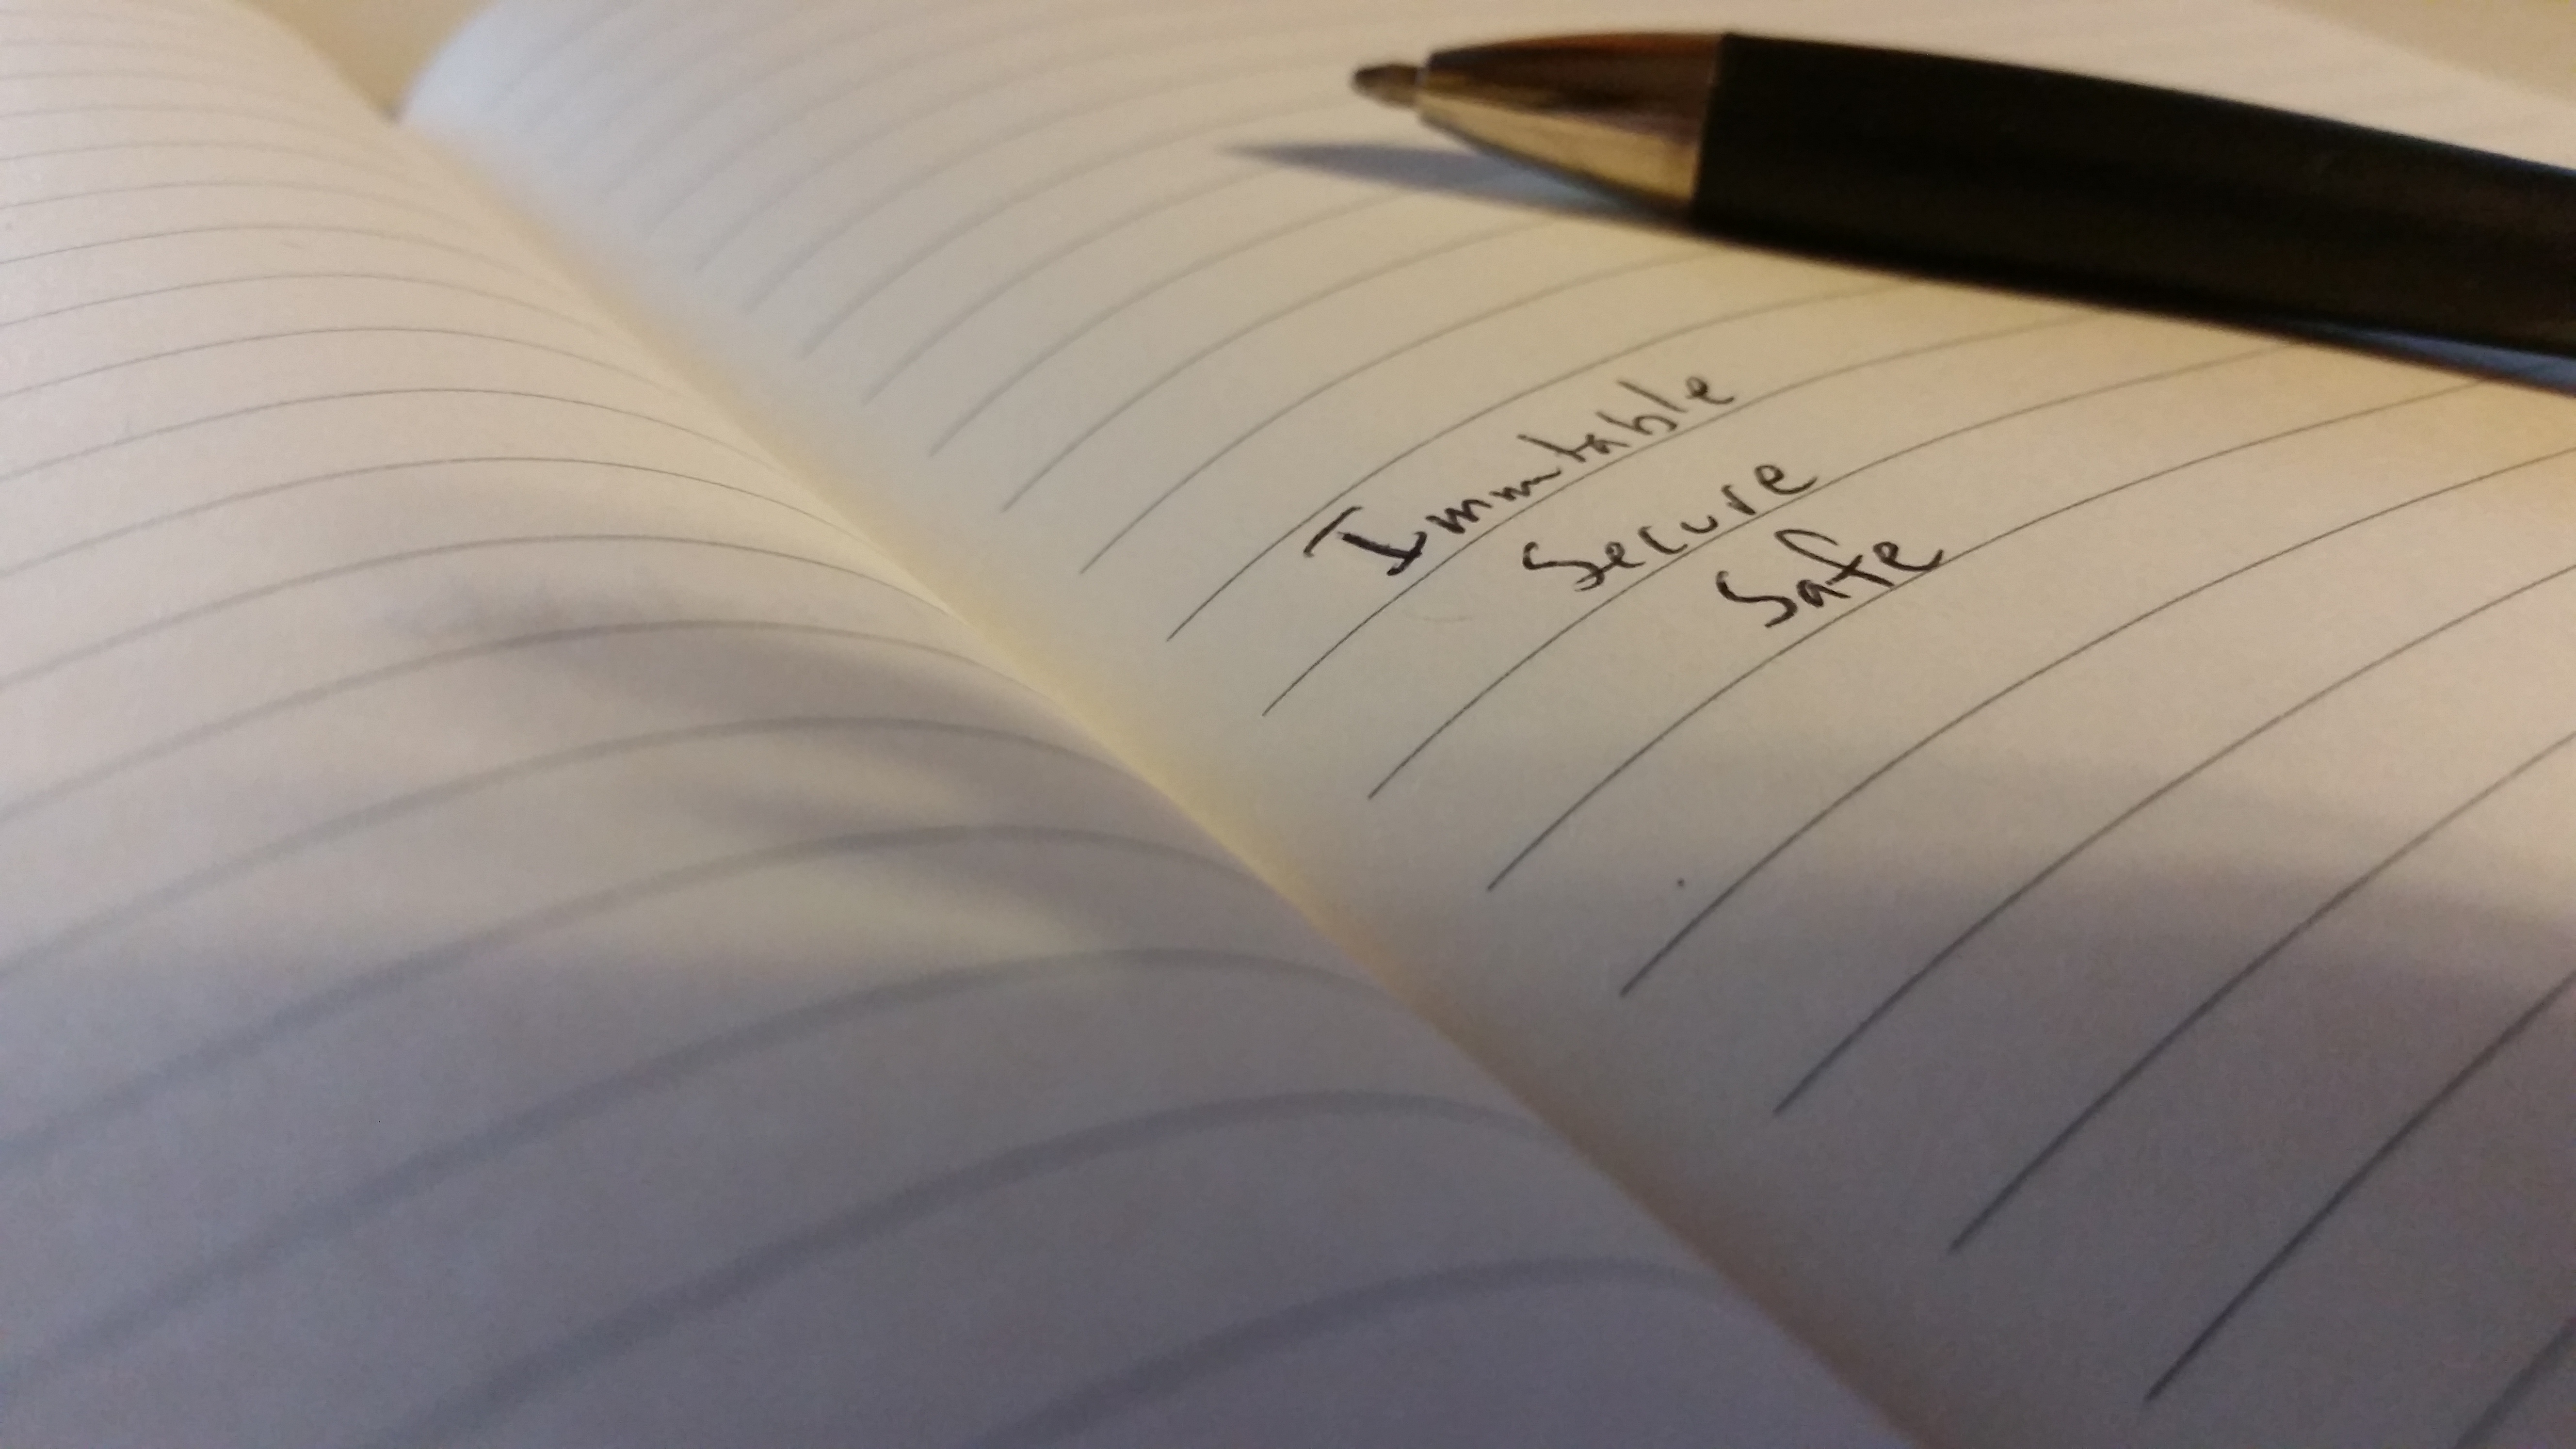 Immutable
Secure
Safe